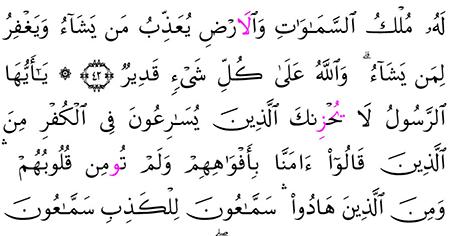 لَهُۥ مُلْكُ السَّمَٰوَٰتِ وَالَارْضِ يُعَذِّبُ مَن يَشَآءُ وَيَغْفِرُ
لِمَن يَشَآءُ ۗ وَاللَّهُ عَلَىٰ كُلِّ شَىْءٍ قَدِيرٌ ﴿٤٢﴾ ۞ يَٰٓأَيُّهَا
الرَّسُولُ لَا يُحْزِنكَ الَّذِينَ يُسَٰرِعُونَ فِى الْكُفْرِ مِنَ
الَّذِينَ قَالُوٓا۟ ءَامَنَّا بِأَفْوَٰهِهِمْ وَلَمْ تُومِن قُلُوبُهُمْ ۛ
وَمِنَ الَّذِينَ هَادُوا۟ ۛ سَمَّٰعُونَ لِلْكَذِبِ سَمَّٰعُونَ